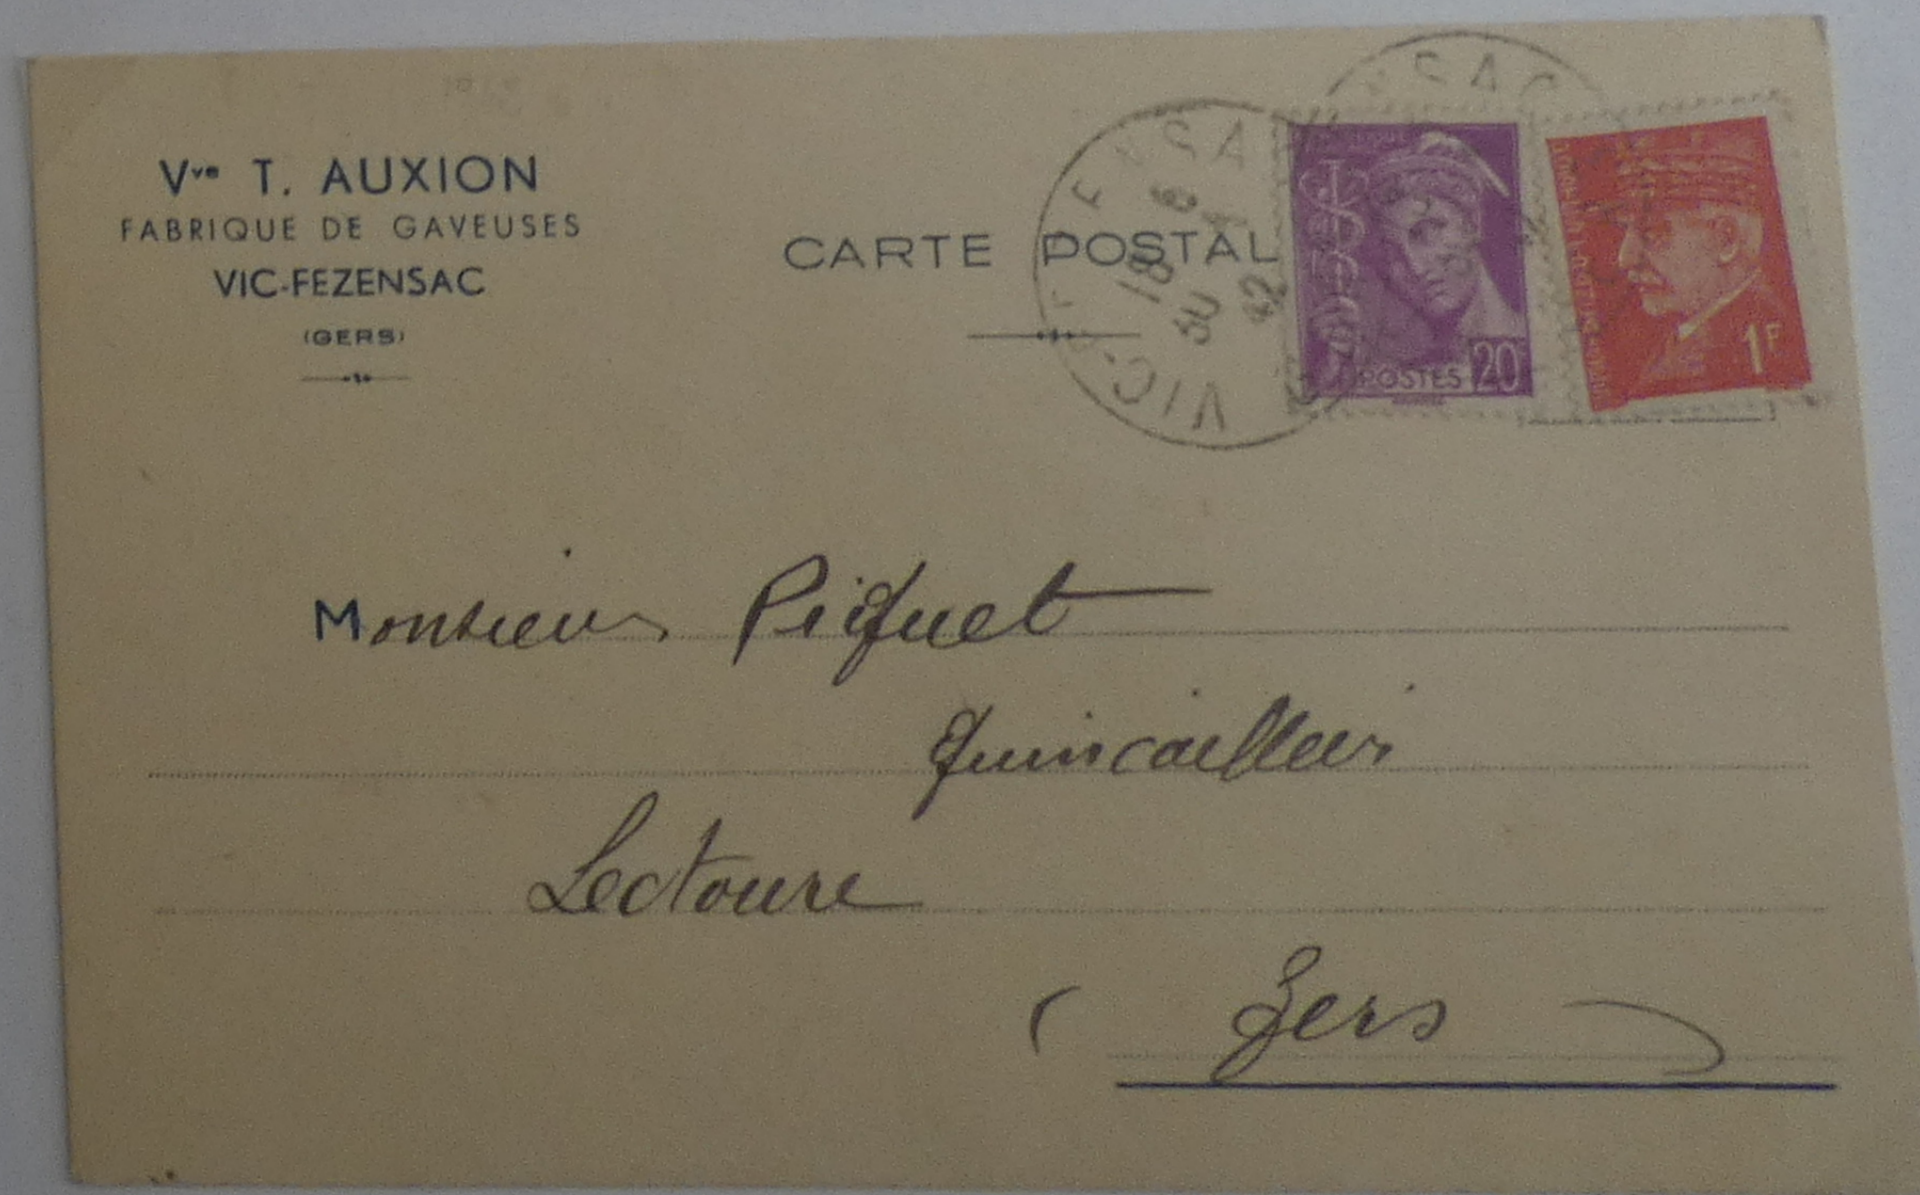 Vve T. AUXION
FABRIQUE DE GAVEUSES
VIC-FEZENSAC
(GERS)
CARTE POSTAL
VIC-FEZENSAC
18
30
42
POSTES 20
1F
Monsieur Piquet
quincailler
Lectoure
( Gers )